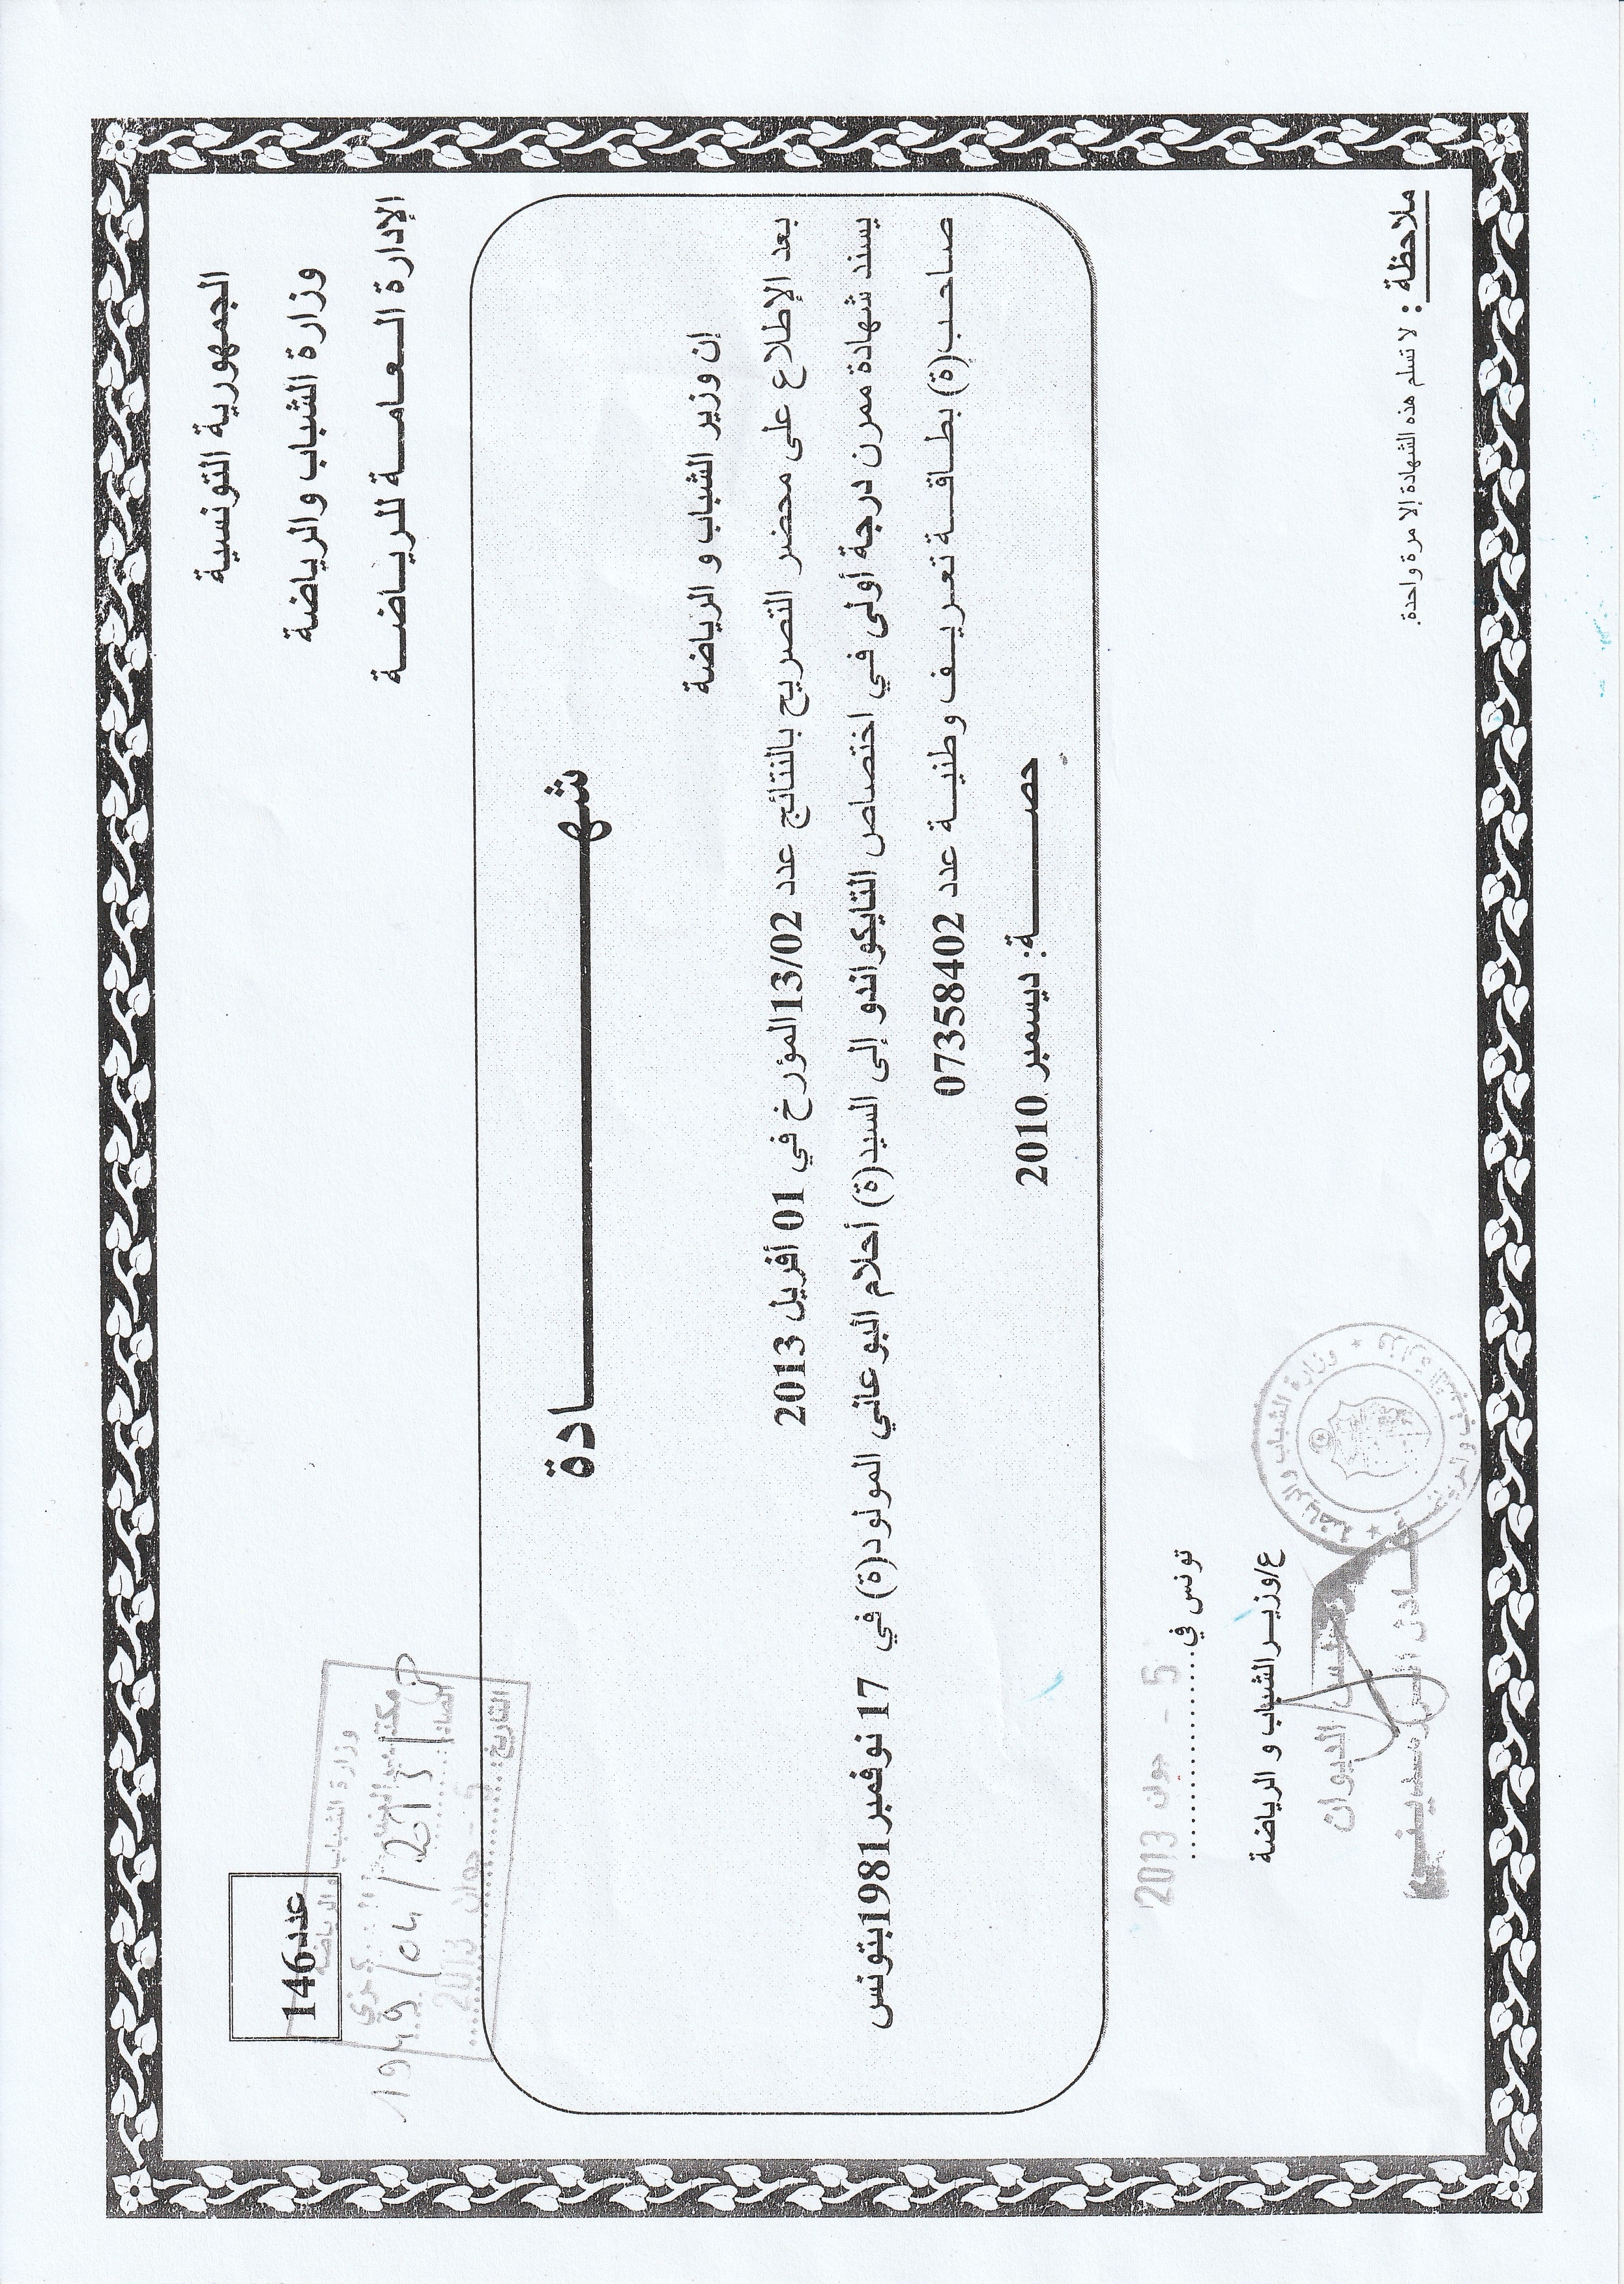 الجمهورية التونسية
وزارة الشباب والرياضة
الإدارة العامة للرياضة
عدد146
وزارة الشباب والرياضة
مكتب الضبط المركزي
التاريخ: 5 - جوان 2013
شهادة
إن وزير الشباب و الرياضة
بعد الإطلاع على محضر التصريح بالنتائج عدد 13/02المؤرخ في 01 أفريل 2013
يسند شهادة ممرن درجة أولى في اختصاص التايكواندو إلى السيد(ة) أحلام البوعاني المولود(ة) في 17 نوفمبر1981بتونس
صاحب(ة) بطاقة تعريف وطنية عدد 07358402
حصة: ديسمبر 2010
تونس في 5 - جوان 2013
ع/وزير الشباب و الرياضة
الديوان
وزارة الشباب والرياضة
ملاحظة : لا تسلم هذه الشهادة إلا مرة واحدة.